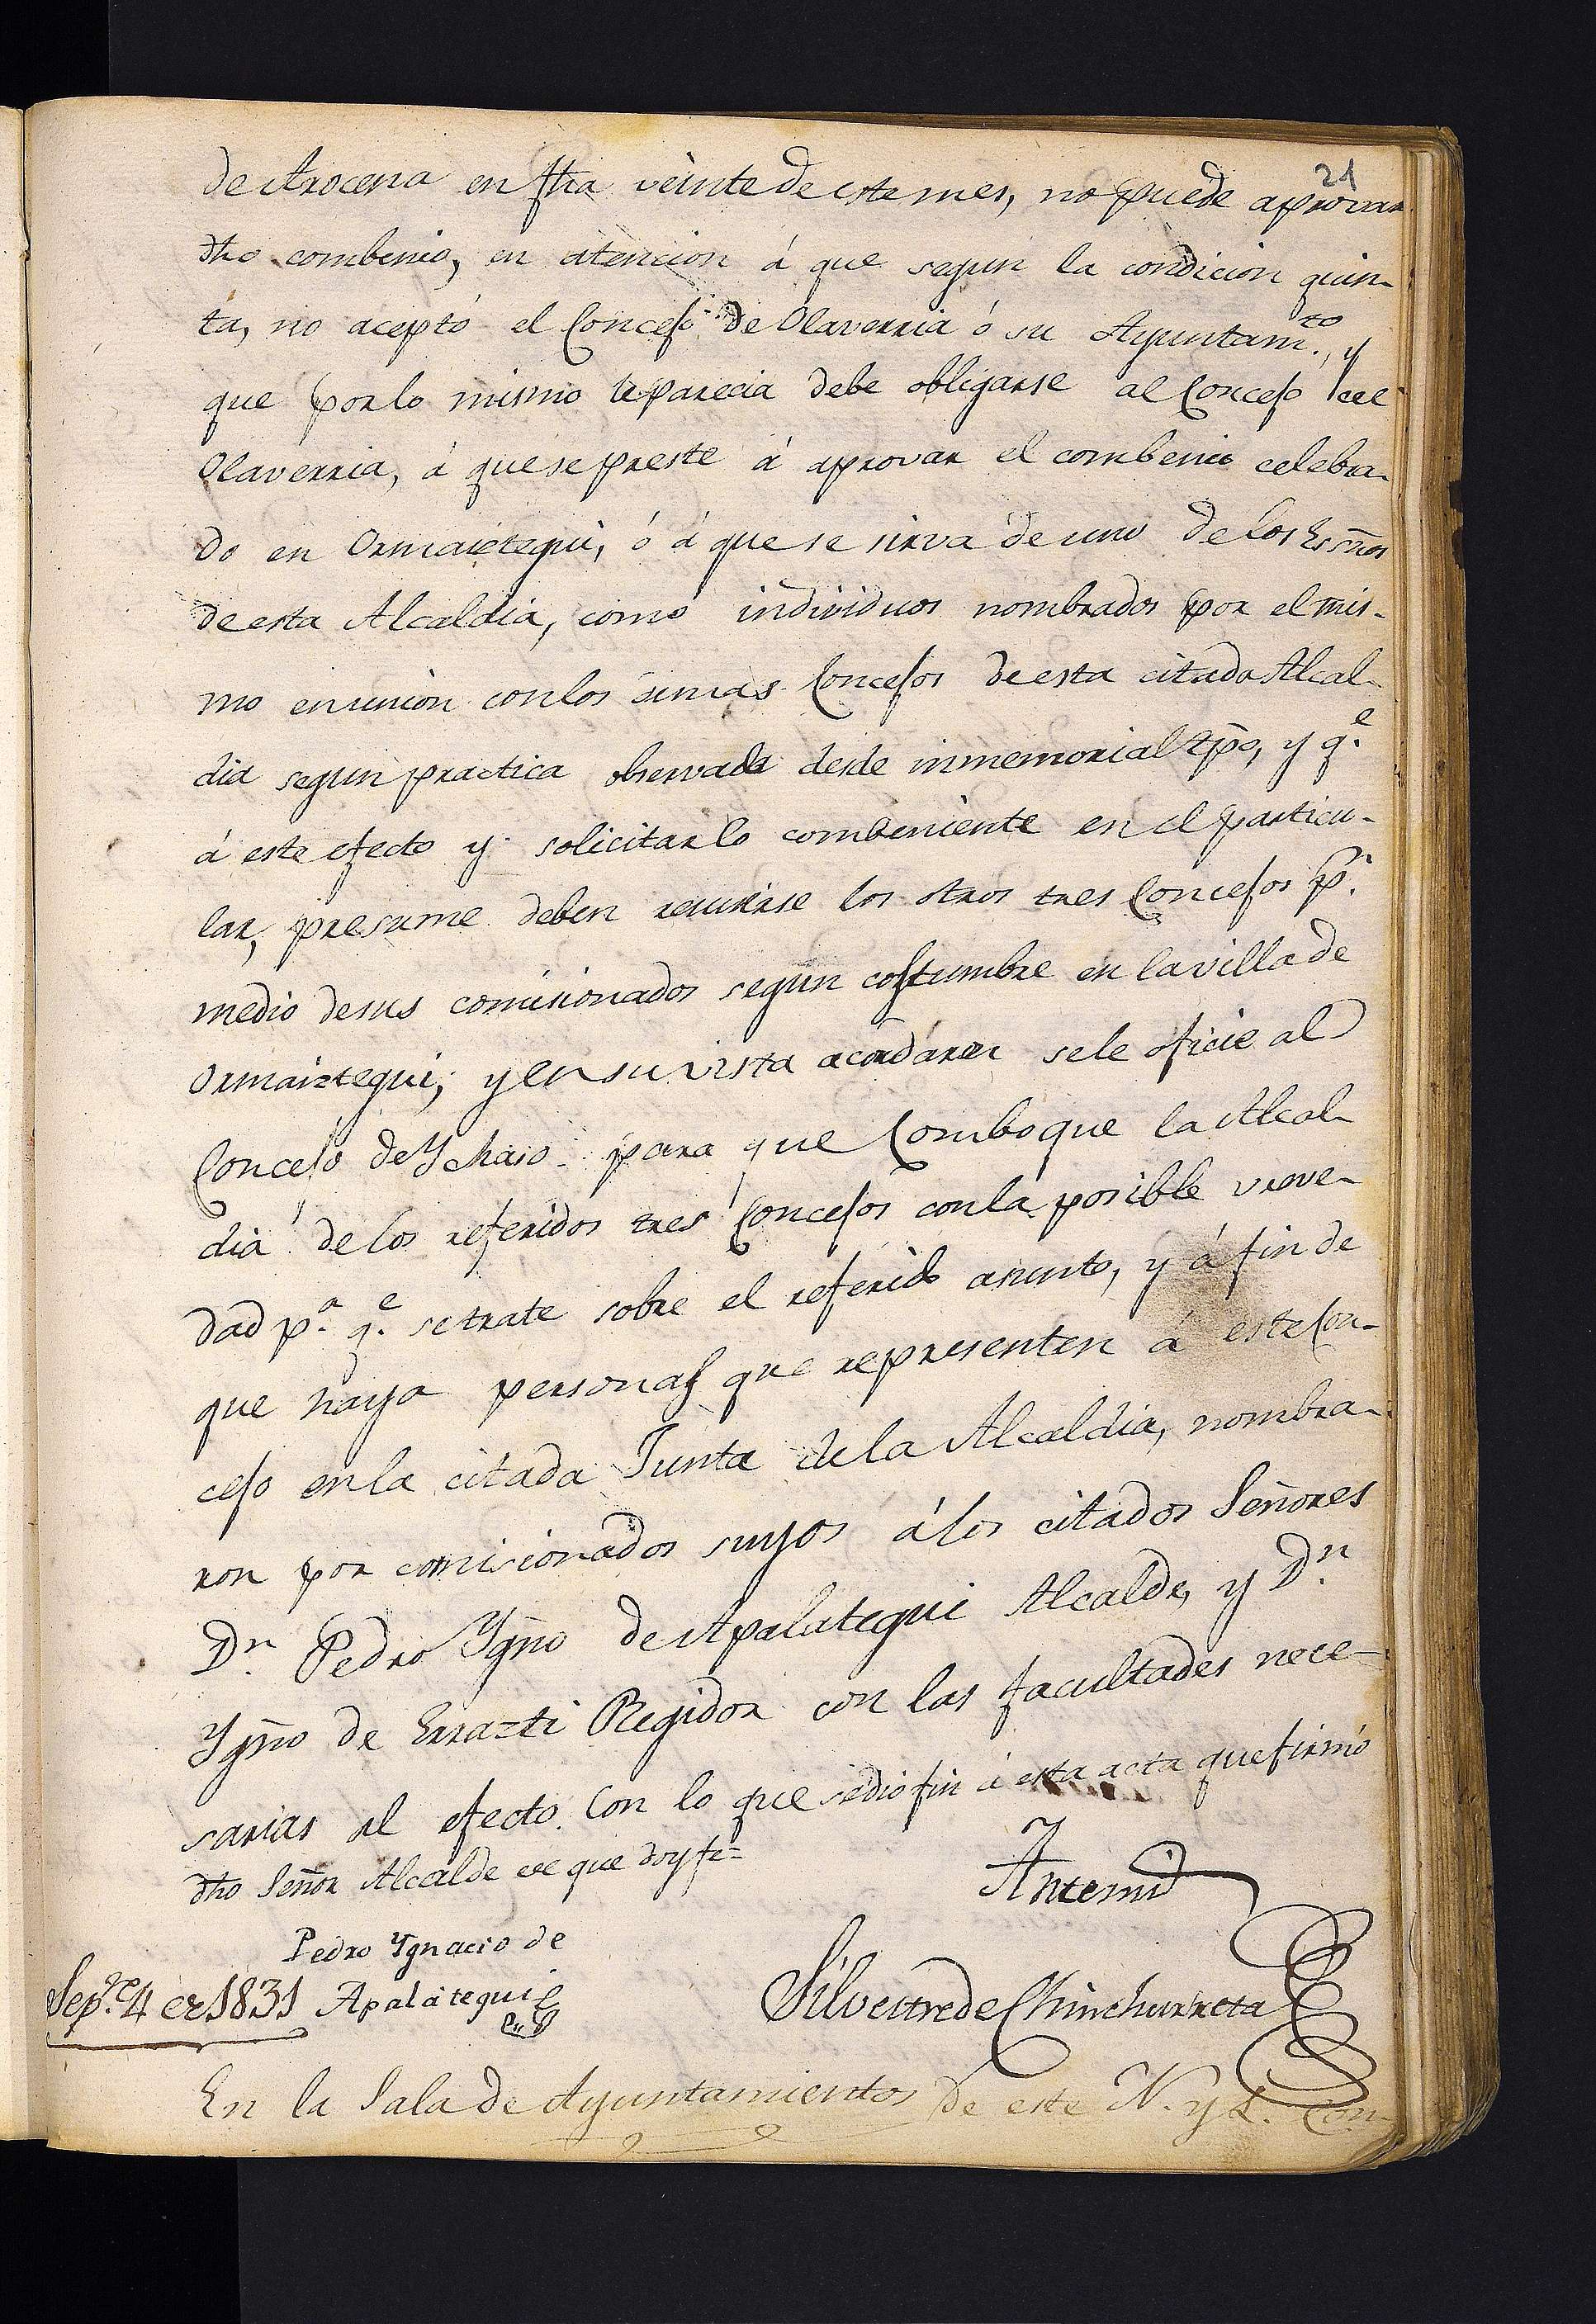 21
de Arocena en fha veinte de este mes, no puede aprovar
dho combenio, en atencion á que segun la condicion quin-
ta, no aceptó el Concejo de Olaverria ó su Ayuntam.to, y
que por lo mismo le parecia debe obligarse al Concejo de
Olaverria, á que se preste á aprovar el combenio celebra-
do en Ormaiztegui, ó á que se sirva de uno de los Esños
de esta Alcaldia, como individuos nombrados por el mis-
mo en union con los demas Concejos de esta citada Alcal-
dia segun practica observada desde inmemorial tpō, y q.e
á este efecto y solicitar lo combeniente en el particu-
lar, presume deben reunirse los otros tres Concejos p.r
medio de sus comisionados segun costumbre en la villa de
Ormaiztegui; y en su vista acordaron se le oficie al
Concejo de Ychaso para que Comboque la Alcal-
dia de los referidos tres Concejos con la posible vreve-
dad p.a q.e se trate sobre el referido asunto, y á fin de
que haya personas que representen á este Con-
cejo en la citada Junta de la Alcaldia, nombra-
ron por comisionados suyos á los citados Señores
D.n Pedro Ygño de Apalategui Alcalde, y D.n
Ygño de Errazti Regidor con las facultades nece-
sarias al efecto. Con lo que se dio fin á esta acta que firmó
dho Señor Alcalde de que doy fe=
Antemi
Pedro Ygnacio de
Apalategui
Silvestre de Chinchurreta
Sep.re 4 de 1831
En la Sala de Ayuntamientos de este N. y L. Con-